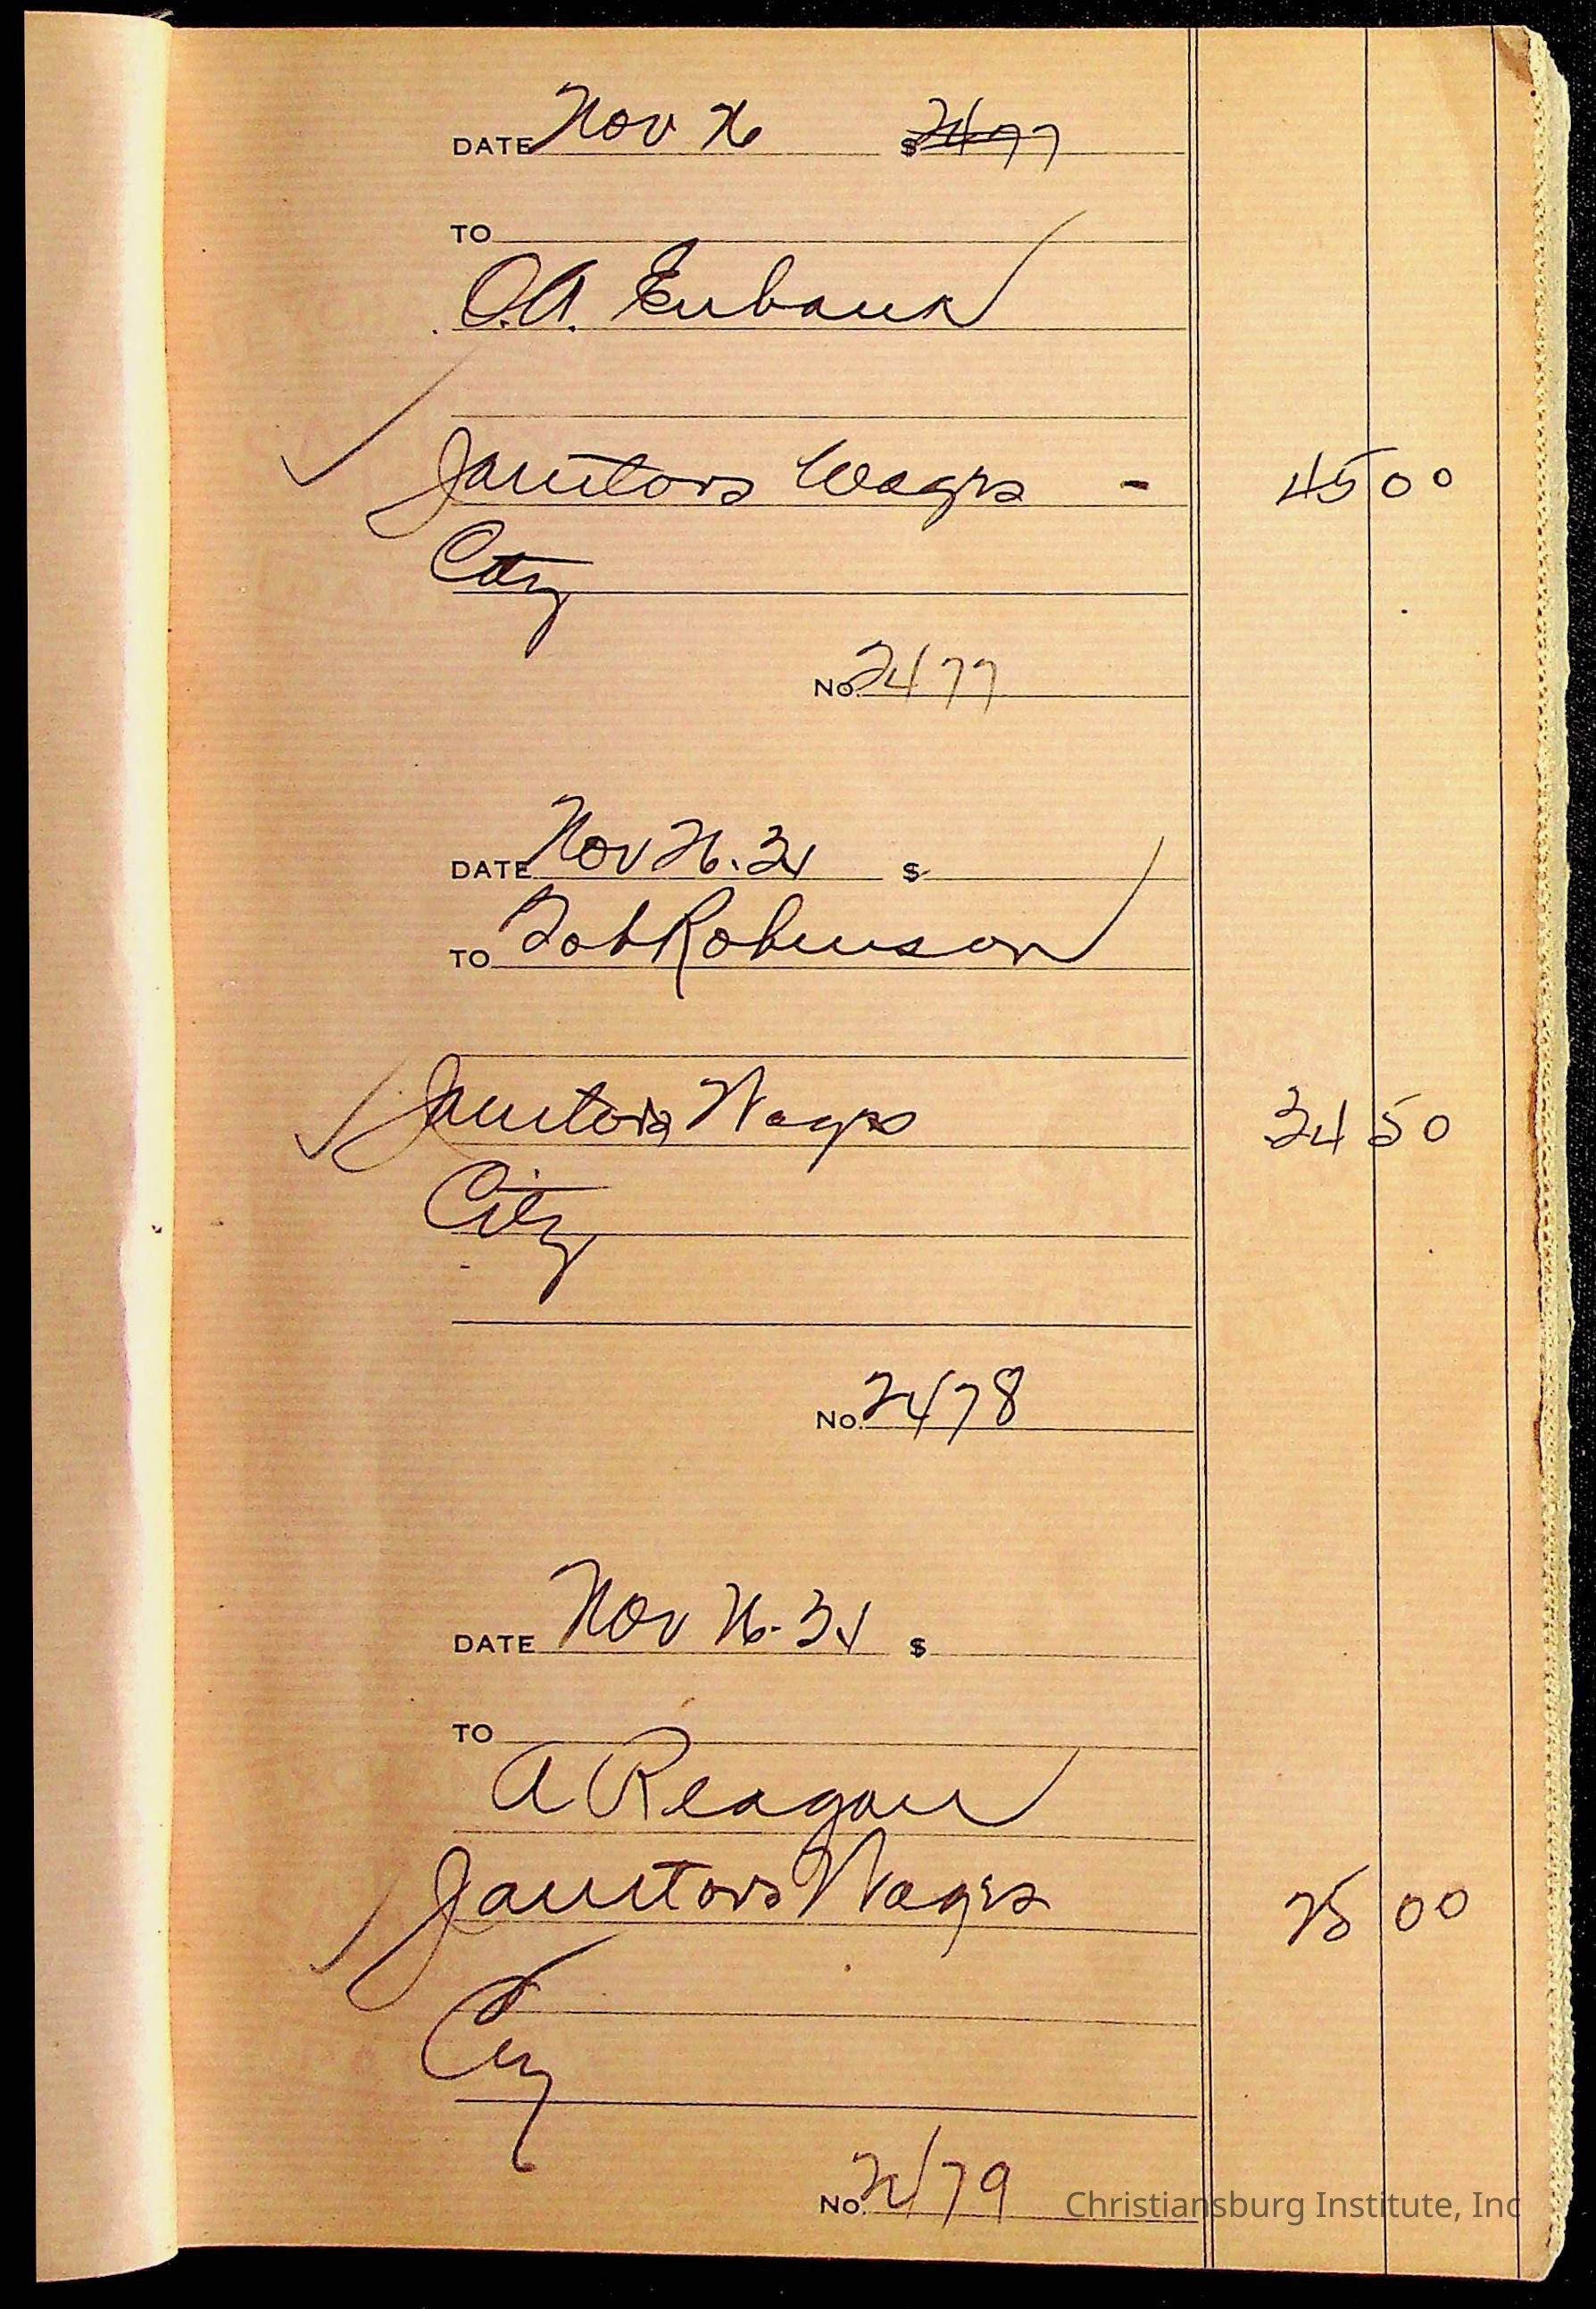 DATE Nov 26 $ 2477
TO
O.A. Eubank
Janitors Wages - 45 00
City
No. 2477
DATE Nov 26. 34 $
TO Bob Robinson
Janitors Wages 34 50
City
No. 2478
DATE Nov 26 - 34 $
TO
A Reagan
Janitors Wages 25 00
City
No. 2479
Christiansburg Institute, Inc